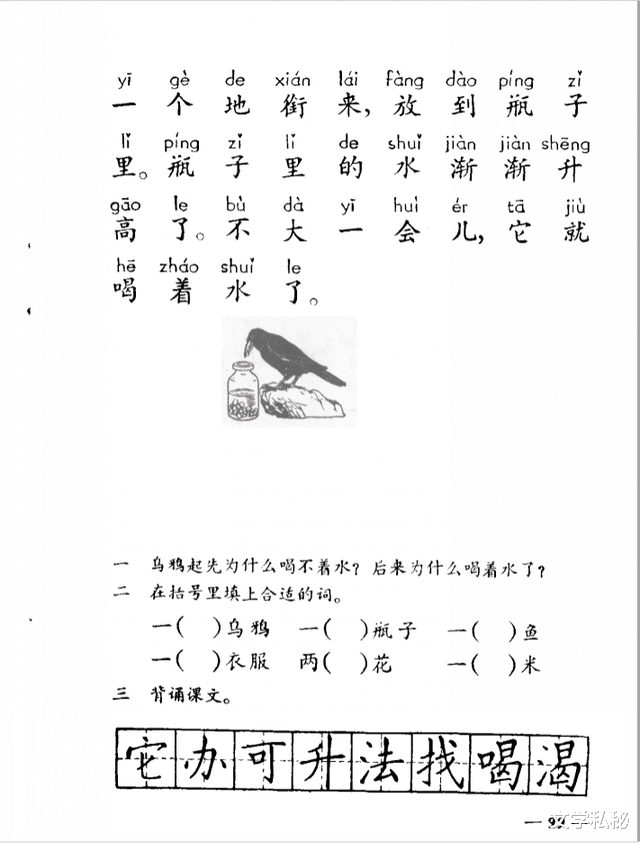 yī gè de xián lái fàng dào píng zǐ
一个地衔来，放到瓶子
lǐ píng zǐ lǐ de shuǐ jiàn jiàn shēng
里。瓶子里的水渐渐升
gāo le bù dà yī huì ér tā jiù
高了。不大一会儿，它就
hē zháo shuǐ le
喝着水了。
一 乌鸦起先为什么喝不着水？后来为什么喝着水了？
二 在括号里填上合适的词。
一( )乌鸦 一( )瓶子 一( )鱼
一( )衣服 两( )花 一( )米
三 背诵课文。
它办可升法找喝渴
文学私秘